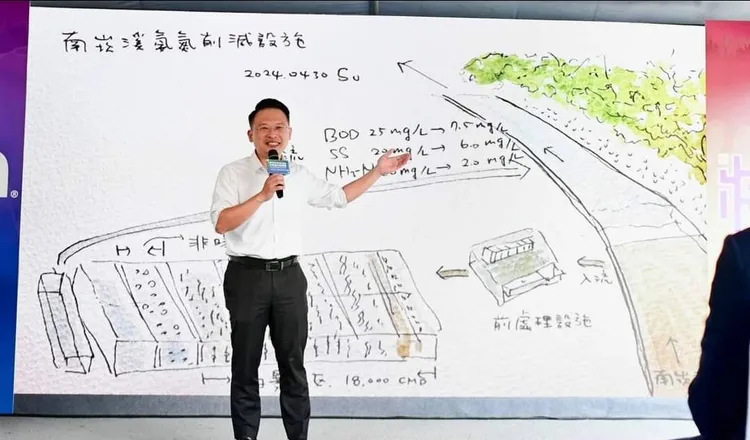 南崁溪氨氮削減設施
2024.0430 Su
流
BOD 25 mg/L → 7.5 mg/L
SS 20 mg/L → 6.0 mg/L
NH3-N → 2.0 mg/L
入流
前處理設施
18,000 CMD
南崁